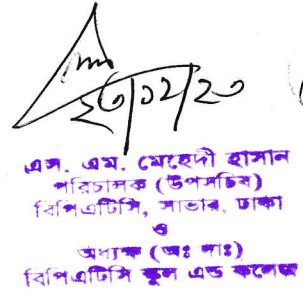 ২৩/১২/২০
এস. এম. মেহেদী হাসান
পরিচালক (উপসচিব)
বিপিএটিসি, সাভার, ঢাকা
ও
অধ্যক্ষ (অঃ দাঃ)
বিপিএটিসি স্কুল এন্ড কলেজ